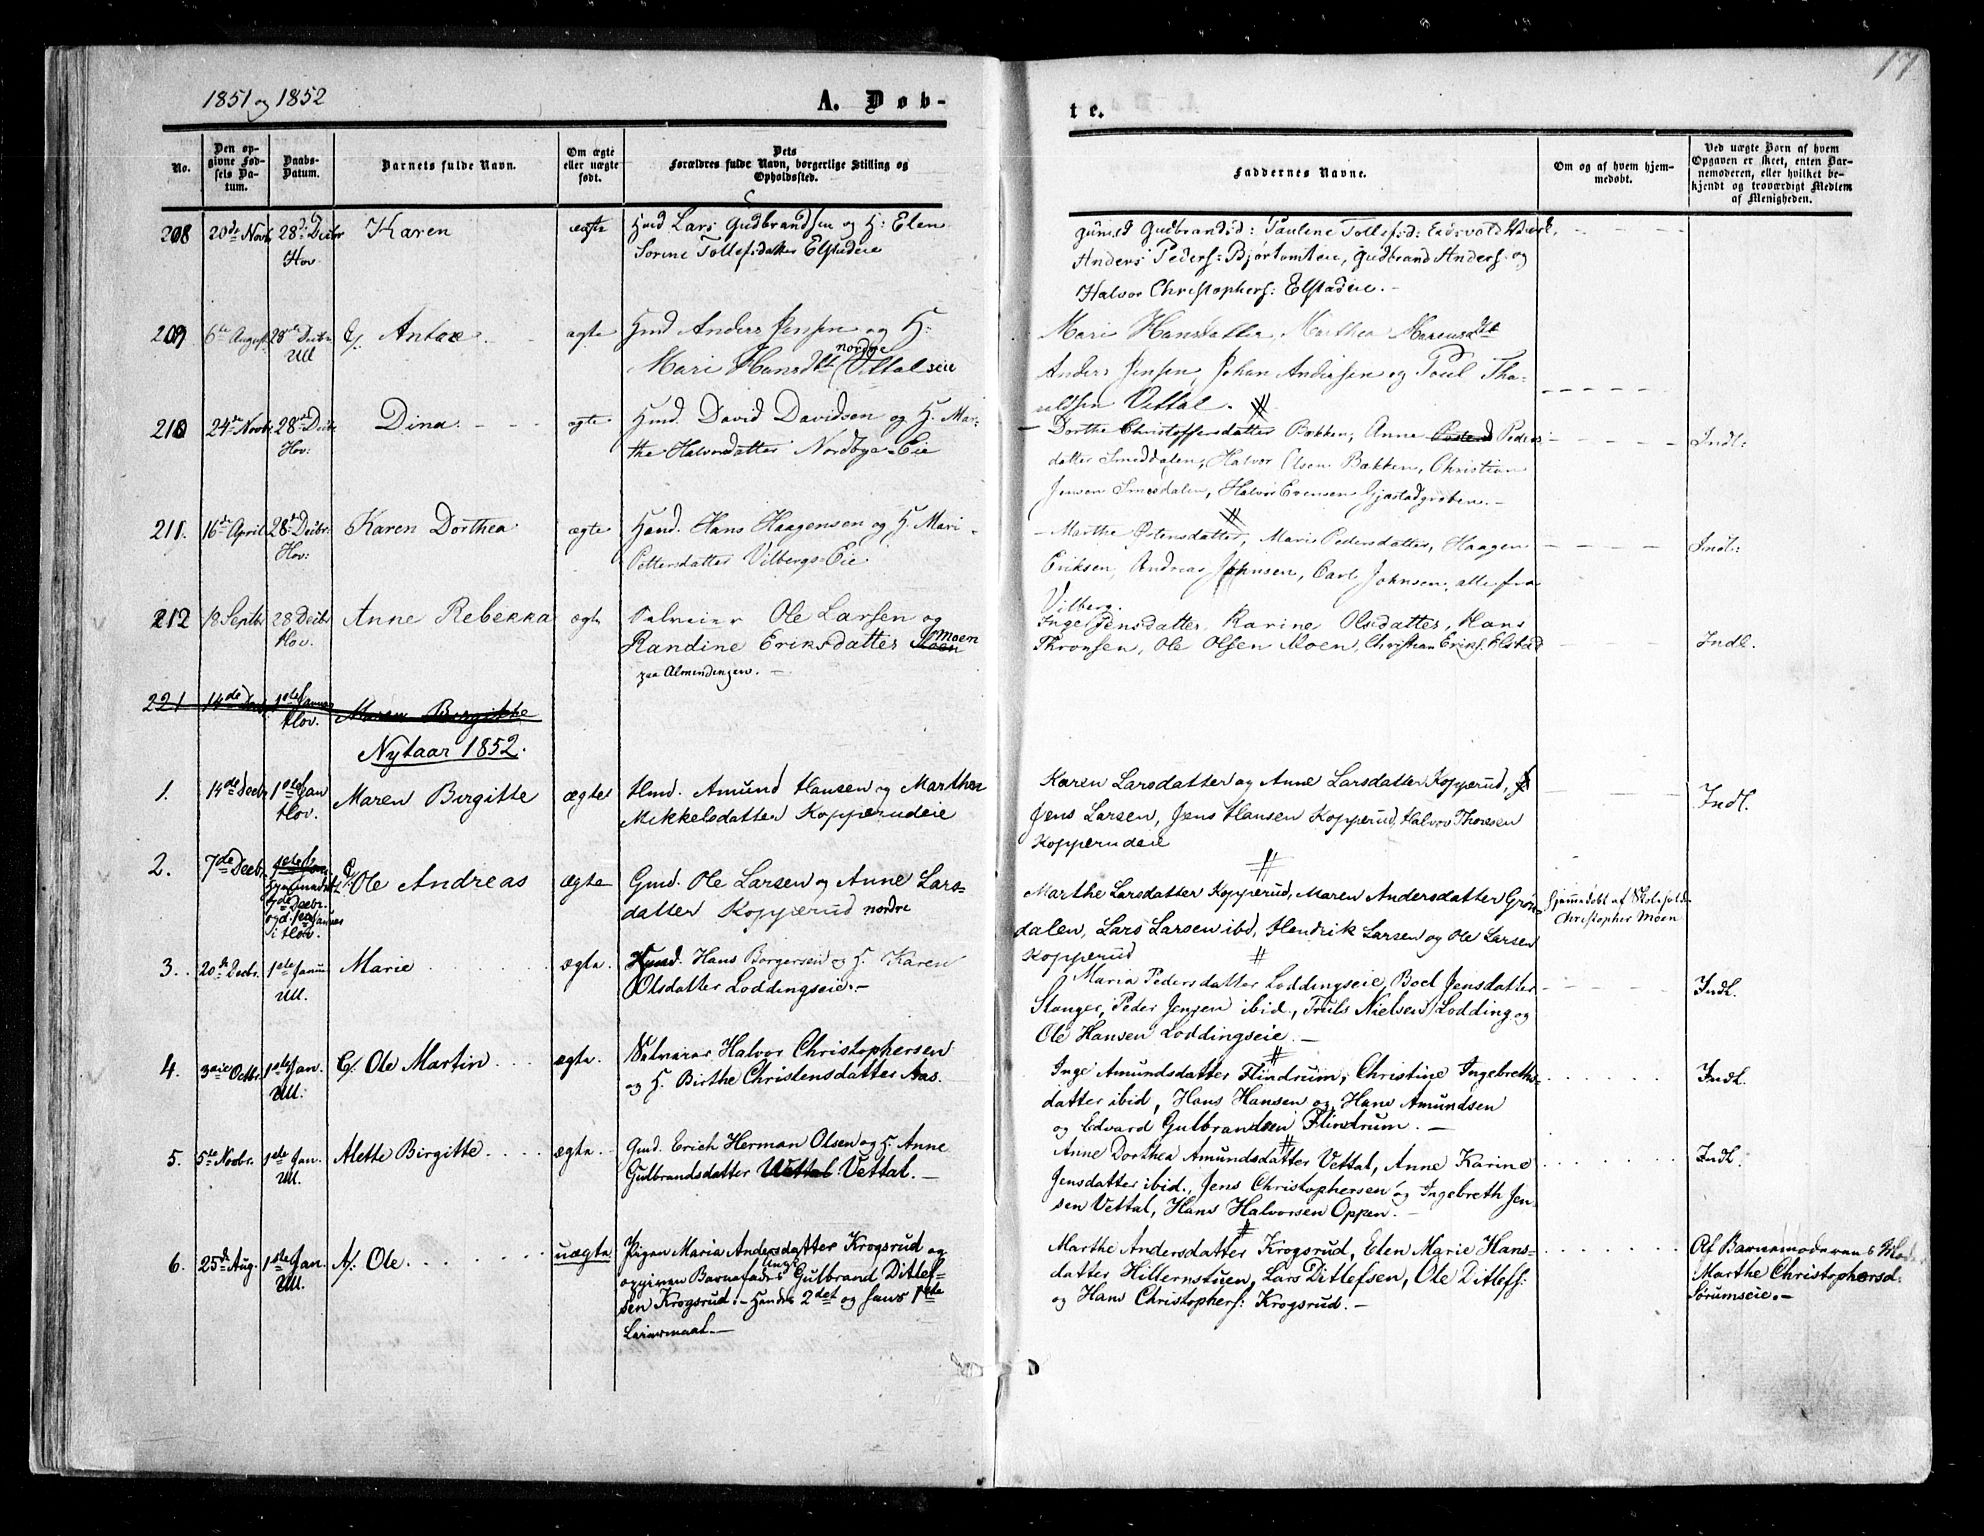 1851 og 1852
A. Døb-
te.
17
No.
Den op-
givne Fød-
sels Da-
tum.
Daabs-
Datum.
Barnets fulde Navn.
Om ægte
eller uægte
født.
Dets
Forældres fulde Navn, borgerlige Stilling og
Opholdssted.
Faddernes Navne.
Om og af hvem hjem-
medøbt.
Ved uægte Børn af hvem
Opgaven er skeet, enten Bar-
nemoderen, eller hvilket be-
kjendt og troværdigt Medlem
af Menigheden.
208 20de Novbr 28de Decbr Karen ægte Hmd Lars Gudbrandsen og H: Elen
Hov Sorine Tollefsdatter Elstadeie
Gudbrandsd: Pauline Tollefsd: Eidsvold
Anders Peders: Bjørtomteie, Gudbrand Anders: og
Halvor Christophers: Elstadeie. -
209 6te August 28de Decbr Antox ægte Hmd Anders Jensen og H:
Ull Mari Hansdtt (Vettalseie
nordre
Mari Hansdatter, Marthea Marcusdtt
Anders Jensen, Johan Andersen og Poul Tho-
aldsen Vettal.
210 24de Novbr 28de Decbr Dina ægte Hmd. David Davidsen og H. Mar-
Hov: the Halvorsdatter Nordbye-Eie
Dorthe Christoffersdatter Bækken, Anne Peders
datter Smeddalen, Halvor Olsen Bækken, Christian
Jensen Smeddalen, Halvor Evensen Gjæstadgroben. -
Indl:
211. 16de April 28de Decbr. Karen Dorthea ægte Hmd. Hans Haagensen og H. Mari -
Hov: Pettersdatter Vilbergs-Eie
- Marthe Østensdatter, Marie Pedersdatter, Haagen
Eriksen, Andreas Johnsen, Carl Johnsen, alle fra
Vilberg.
Indl:
212 18 Septbr 28 Decbr Anne Rebekka ægte Selveier Ole Larsen og
Hov. Randine Eriksdatter Moen Moen
paa Almendingen. -
Inge Jensdatter, Karine Olsdatter, Hans
Thronsen, Ole Olsen Moen, Christian Eriks. Elstad
Indl.
221 14de Decbr 1ste Januar Maren Birgitte
Hov.
Nytaar 1852.
1. 14de Decbr 1ste Jan Maren Birgitte ægte Hmd. Amund Hansen og Marthe
Hov. Mikkelsdatter Kopperudeie
Karen Larsdatter og Anne Larsdatter Kopperud,
Jens Larsen, Jens Hansen Kopperud, Halvor Thoresen
Kopperudeie
Indl.
2. 7de Decbr 1ste Jan Ole Andreas ægte Gmd. Ole Larsen og Anne Lars-
hjemmedøbt
7de Decbr.
i Hov.
datter Kopperud nordre
Marthe Larsdatter Kopperud, Maren Andersdatter Grøn-
dalen, Lars Larsen ibd, Hendrik Larsen og Ole Larsen
Kopperud
hjemmedøbt af Skoleholder
Christopher Moen
3. 20de Decbr. 1ste Januar Marie ægte. Hmd. Hans Borgersen og H. Karen
Ull. Olsdatter Loddingseie. -
Maria Pedersdatter Loddingseie, Boel Jensdatter
Stanger, Peder Jensen ibid., Truls Nielsen Lodding og
Ole Hansen Loddingseie. -
Indl.
4. 3die Octbr. 1ste Jan. Ole Martin ægte. Selveier Halvor Christophersen
Ull. og H. Birthe Christensdatter Aas.
Inge Amundsdatter Flindrum, Christine Ingebreths-
datter ibid, Hans Hansen og Hans Amundsen
og Edvard Gulbrandsen Flindrum. -
Indl.
5. 5te Novbr. 1ste Jan. Alette Birgitte ægte. Gmd. Erich Herman Olsen og H. Anne
Ull. Gulbrandsdatter Vettal Vettal. -
Anne Dorthea Amundsdatter Vettal, Anne Karine
Jensdatter ibid., Jens Christophersen og Ingebreth Jen-
sen Vettal, Hans Halvorsen Oppen. -
Indl.
6. 25de Aug. 1ste Jan. Ole uægte Pigen Maria Andersdatter Krogsrud og
Ull. opgiven Barnefader Ungk. Gulbrand Ditlef-
sen Krogsrud. - Hendes 2det og hans 1ste
Leiermaal. -
Marthe Andersdatter Krogsrud, Elen Marie Hans-
datter Hillernstuen, Lars Ditlefsen, Ole Ditlefs:
og Hans Christophers: Krogsrud. -
Af Barnemoderens Mod.
Marthe Christophersd.
Sørumseie. -